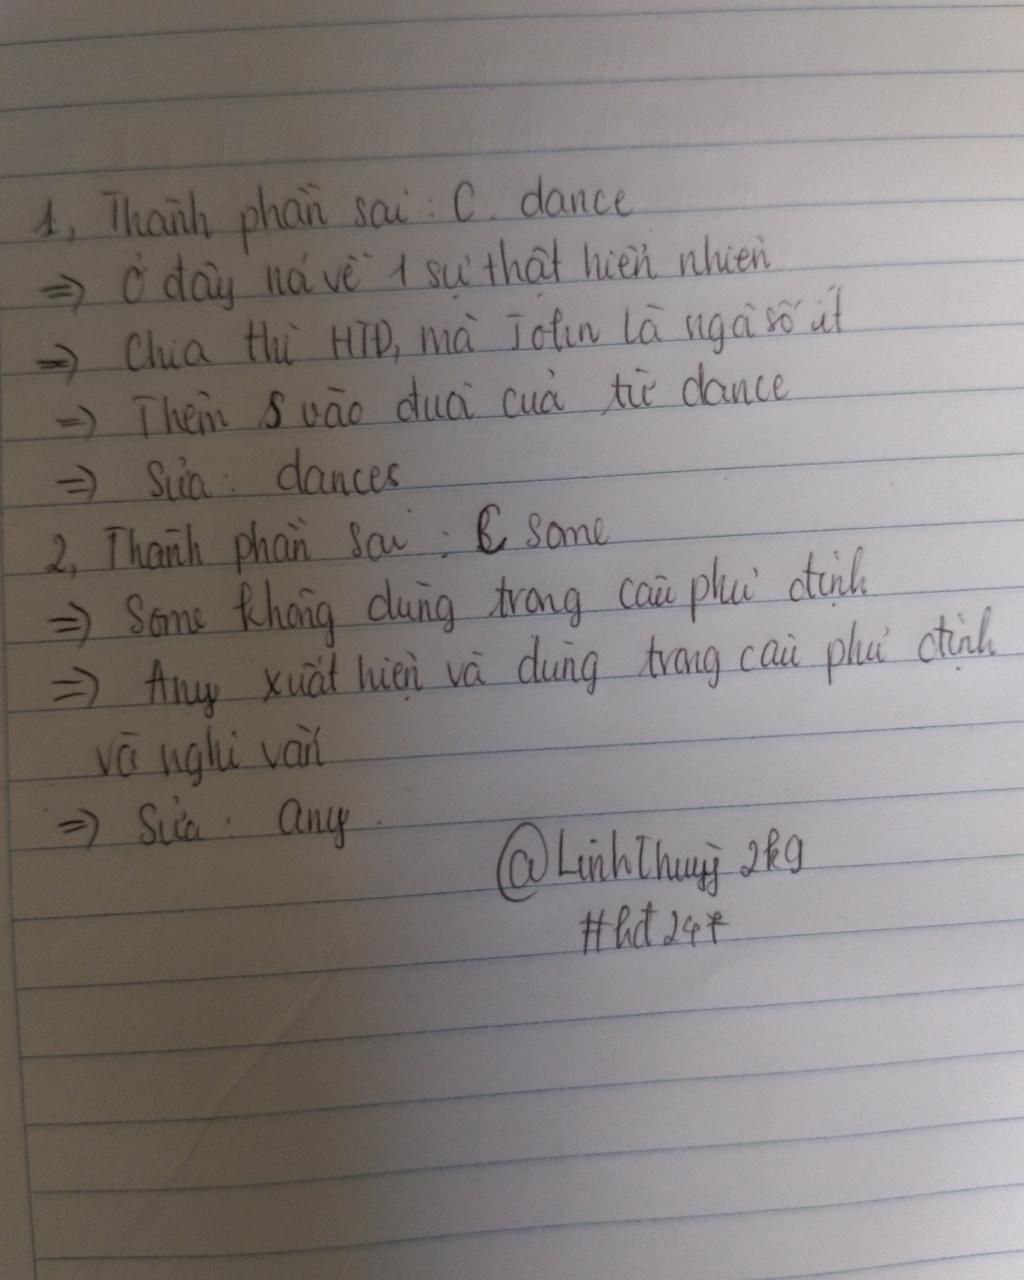 1, Thành phần sai : C. dance
=> Ở đây nó về 1 sự thật hiển nhiên
=> Chia thì HTĐ, mà John là ngôi số ít
=> Thêm s vào đuôi của từ dance
=> Sửa : dances
2, Thành phần sai : C some
=> Some không dùng trong câu phủ định
=> Any xuất hiện và dùng trong câu phủ định
và nghi vấn
=> Sửa : any.
@LinhThuỳ 2k9
#hđ 247